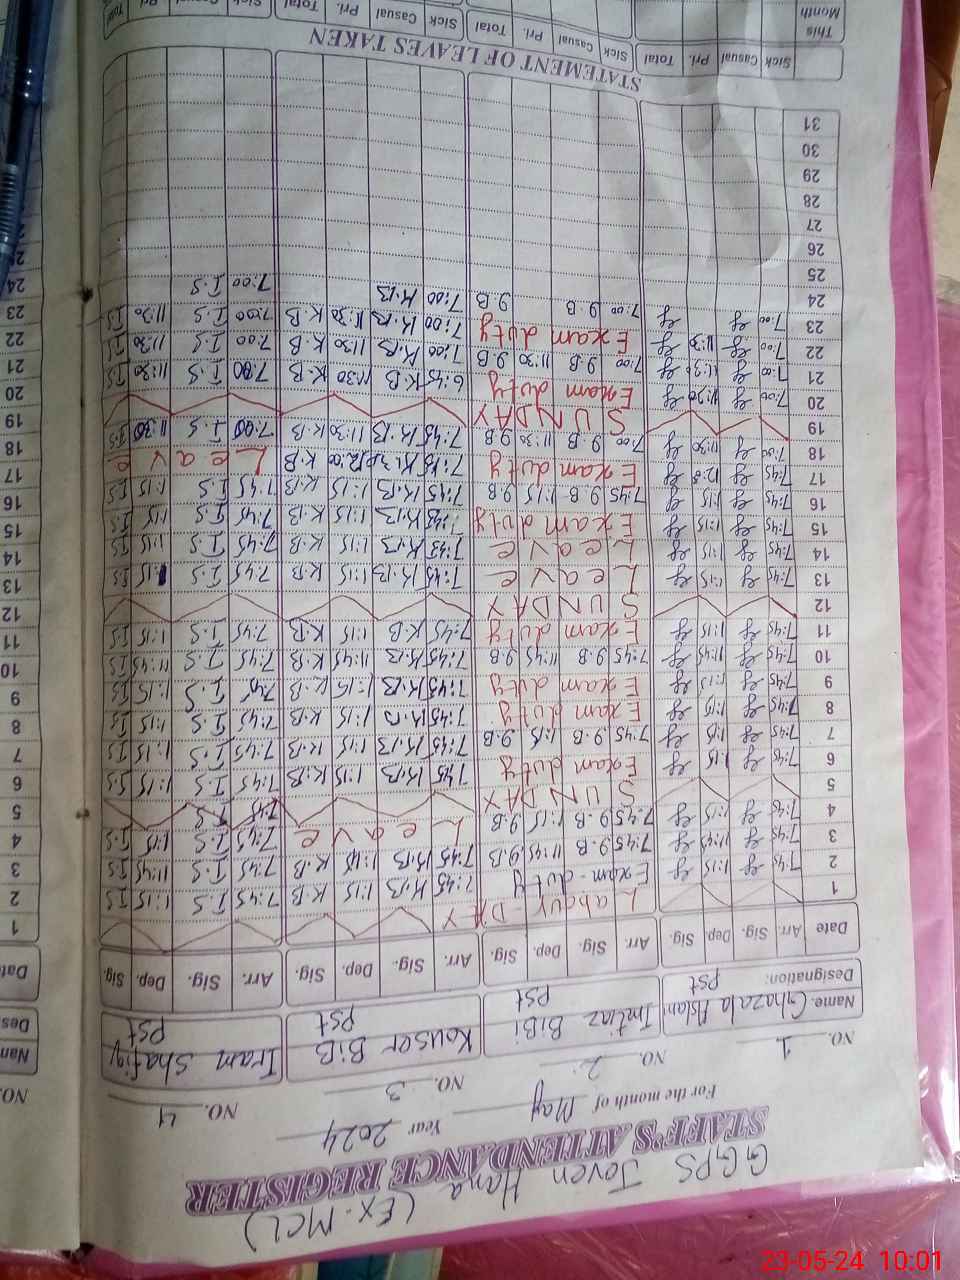 GGPS Joven Hana (Ex. MCL)
STAFF'S ATTENDANCE REGISTER
For the month of May Year 2024
NO. 1 NO. 2 NO. 3 NO. 4
Name: Ghazala Aslam Imtiaz BiBi Kouser BiB Iram Shafiq
Designation: PST PST PST PST
Date Arr. Sig. Dep. Sig. Arr. Sig. Dep. Sig. Arr. Sig. Dep. Sig. Arr. Sig. Dep. Sig.
1 Labour-DAY
2 7:45 1:15 Exam-duty 7:45 K.B 1:15 K.B 7:45 I.S 1:15 I.S
3 7:45 11:45 7:45 9.B 11:45 9.B 7:45 K.B K.B 7:45 I.S 11:45 I.S
4 7:45 1:15 7:45 9.B 1:15 9.B Leave 7:45 I.S 1:15 I.S
5 SUNDAY
6 7:45 1:15 Exam duty 7:45 K.B 1:15 K.B 7:45 I.S 1:15 I.S
7 7:45 1:15 7:45 9.B 1:15 9.B 7:45 K.B 1:15 K.B 7:45 I.S 1:15 I.S
8 7:45 1:15 Exam duty 7:45 K.B 1:15 K.B 7:45 I.S 1:15 I.S
9 7:45 1:15 Exam duty 7:45 K.B 1:15 K.B 7:45 I.S 1:15 I.S
10 7:45 11:45 7:45 9.B 11:45 9.B 7:45 K.B 11:45 K.B 7:45 I.S 11:45 I.S
11 7:45 1:15 Exam duty 7:45 K.B 1:15 K.B 7:45 I.S 1:15 I.S
12 SUNDAY
13 7:45 1:15 Leave 7:45 K.B 1:15 K.B 7:45 I.S 1:15 I.S
14 7:45 1:15 Leave 7:43 K.B 1:15 K.B 7:45 I.S 1:15 I.S
15 7:45 1:15 Exam duty 7:43 K.B 1:15 K.B 7:45 I.S 1:15 I.S
16 7:45 1:15 7:45 9.B 1:15 9.B 7:45 K.B 1:15 K.B 7:45 I.S 1:15 I.S
17 7:45 Exam duty 12:00 K.B Leave
18 7:00 11:30 7:00 9.B 11:30 9.B 7:45 K.B 11:30 K.B 7:00 I.S 11:30 I.S
19 SUNDAY
20 7:00 11:30 Exam duty 6:45 K.B 11:30 K.B 7:00 I.S 11:30 I.S
21 7:00 11:30 7:00 9.B 11:30 9.B 7:00 K.B 11:30 K.B 7:00 I.S 11:30 I.S
22 7:00 11:30 Exam duty 7:00 K.B 11:30 K.B 7:00 I.S 11:30 I.S
23 7:00 7:00 9.B 9.B 7:00 K.B 7:00 I.S
24
25
26
27
28
29
30
31
STATEMENT OF LEAVES TAKEN
Sick Casual Pri. Total Sick Casual Pri. Total Sick Casual Pri. Total Sick Casual Pri. Total
This Month
23-05-24 10:01